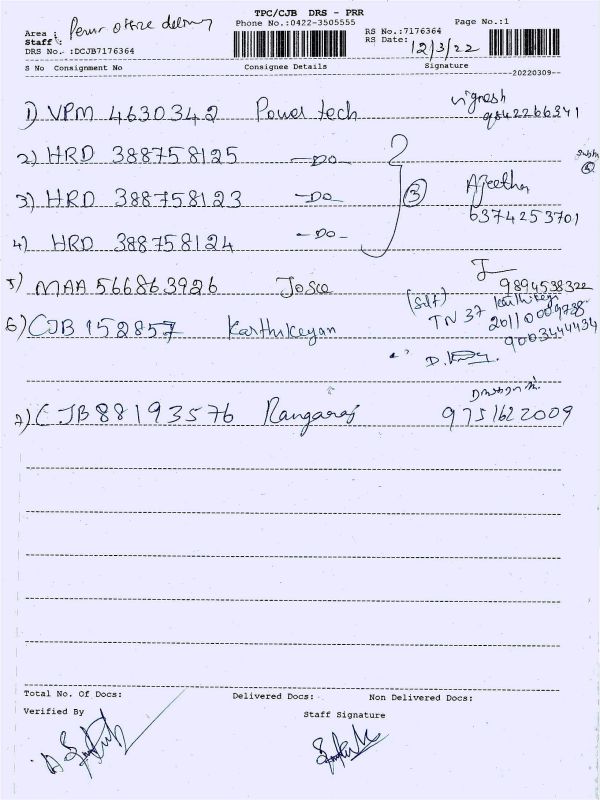 TPC/CJB DRS - PRR
Phone No.:0422-3505555
Page No.:1
Area : Perur office delivery
Staff :
DRS No.:DCJB7176364
RS No.:7176364
RS Date: 12/3/22
S No Consignment No Consignee Details Signature
20220309
1) VPM 4630342 Power tech Vignesh
9842266341
2) HRD 388758125 -DO-
3) HRD 388758123 -DO- 3 Ajeetha
6374253701
4) HRD 388758124 -DO-
5) MAA 566863926 Josco 9894538322
6) CJB 152857 Karthikeyan (Self) Karthikeyan
TN 37 20110009738
9003444434
7) CJB 88193576 Rangaraj
9751622009
Total No. Of Docs: Delivered Docs: Non Delivered Docs:
Verified By Staff Signature